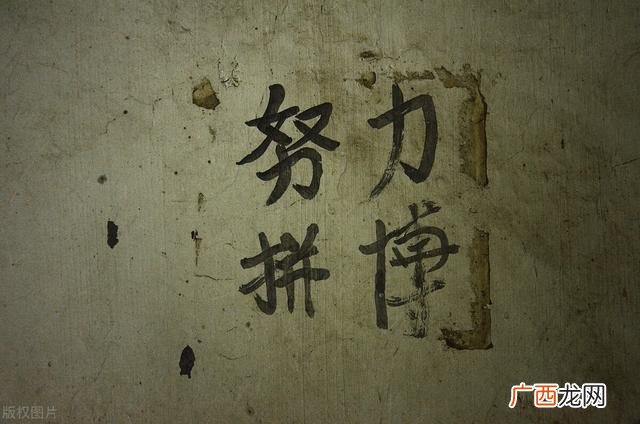 努力
拼博
版权图片
广西龙网